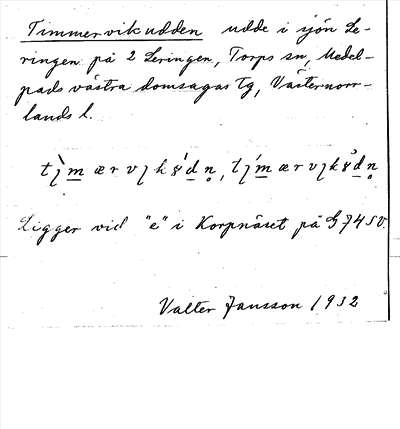 Timmervikudden udde i sjön Le-
ringen på 2 Leringen, Torps sn, Medel-
pads västra domsagas tg, Västernorr-
lands l.
Ligger vid "e" i Korpnäset på G74SV.
Valter Jansson 1932